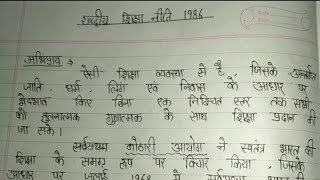 राष्ट्रीय शिक्षा नीति 1986
अभिप्राय
ऐसी शिक्षा व्यवस्था से है, जिसके अन्तर्गत
जाति, धर्म, लिंग एवं निवास के आधार पर
भेदभाव किए बिना एक निश्चित स्तर तक सभी
को तुलनात्मक गुणात्मक के साथ शिक्षा प्रदान की
जा सके।
सर्वप्रथम कोठारी आयोग ने स्वतंत्र भारत की
शिक्षा के समग्र रूप पर विचार किया, जिसके
आधार पर 1968 में